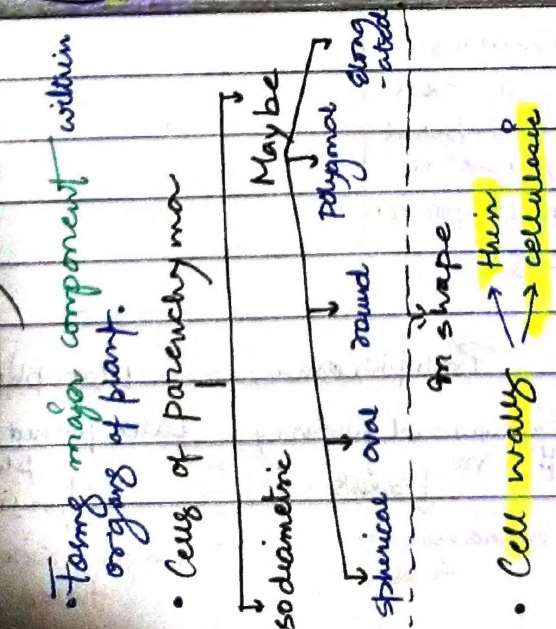 • Forms major component within
organs of plant.
• Cells of parenchyma
isodiametric Maybe
spherical oval round polygonal Elong
-ated
In shape
• Cell walls → Thin
→ cellulosic